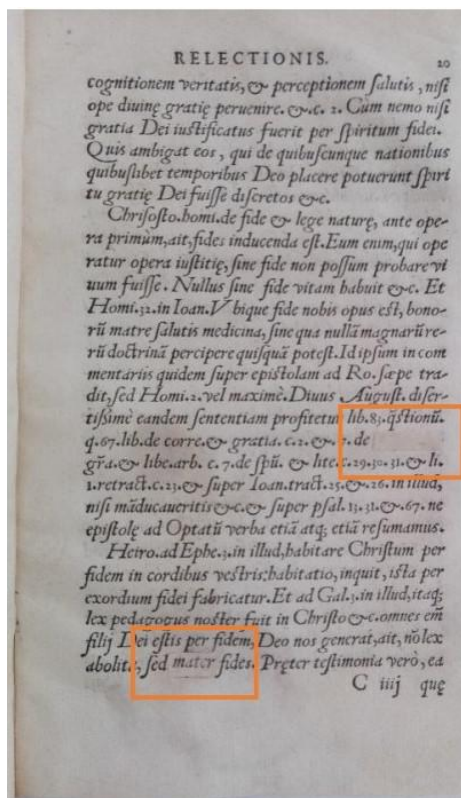 RELECTIONIS. 20
cognitionem veritatis, & perceptionem salutis, nisi
ope diuinę gratię peruenire. &.c. 2. Cum nemo nisi
gratia Dei iustificatus fuerit per spiritum fidei.
Quis ambigat eos, qui de quibuscunque nationibus
quibuslibet temporibus Deo placere potuerunt spiri
tu gratię Dei fuisse discretos &c.
Chrisosto.homi.de fide & lege naturę, ante ope-
ra primùm,ait,fides inducenda est.Eum enim,qui ope
ratur opera iustitię, sine fide non possum probare vi
uum fuisse. Nullus sine fide vitam habuit &c. Et
Homi.32.in Ioan. Vbique fide nobis opus est, bono-
rũ matre salutis medicina, sine qua nullã magnarũ re-
rũ doctrinã percipere quisquã potest. Id ipsum in com
mentariis quidem super epistolam ad Ro. sæpe tra-
dit, sed Homi.2.vel maximè. Diuus August. diser-
tissimè eandem sententiam profitetur lib.83.q̃stionũ.
q.67.lib.de corre.& gratia. c.2.&. 7. de
grã.& libe.arb. c. 7.de spũ. & lite.c.29.30.31.& li.
1.retract.c.23.& super Ioan.tract.25.& .26.in illud,
nisi mãducaueritis &c.& super psal.13.31.&.67. ne
epistolę ad Optatũ verba etiã atq; etiã resumamus.
Heiro.ad Ephe.3.in illud,habitare Christum per
fidem in cordibus vestris:habitatio, inquit, ista per
exordium fidei fabricatur. Et ad Gal.3.in illud,itaq;
lex pedagogus noster fuit in Christo &c.omnes em̃
filij Dei estis per fidem, Deo nos generat,ait, nõ lex
abolita, sed mater fides. Pręter testimonia verò, ea
C iiij quę